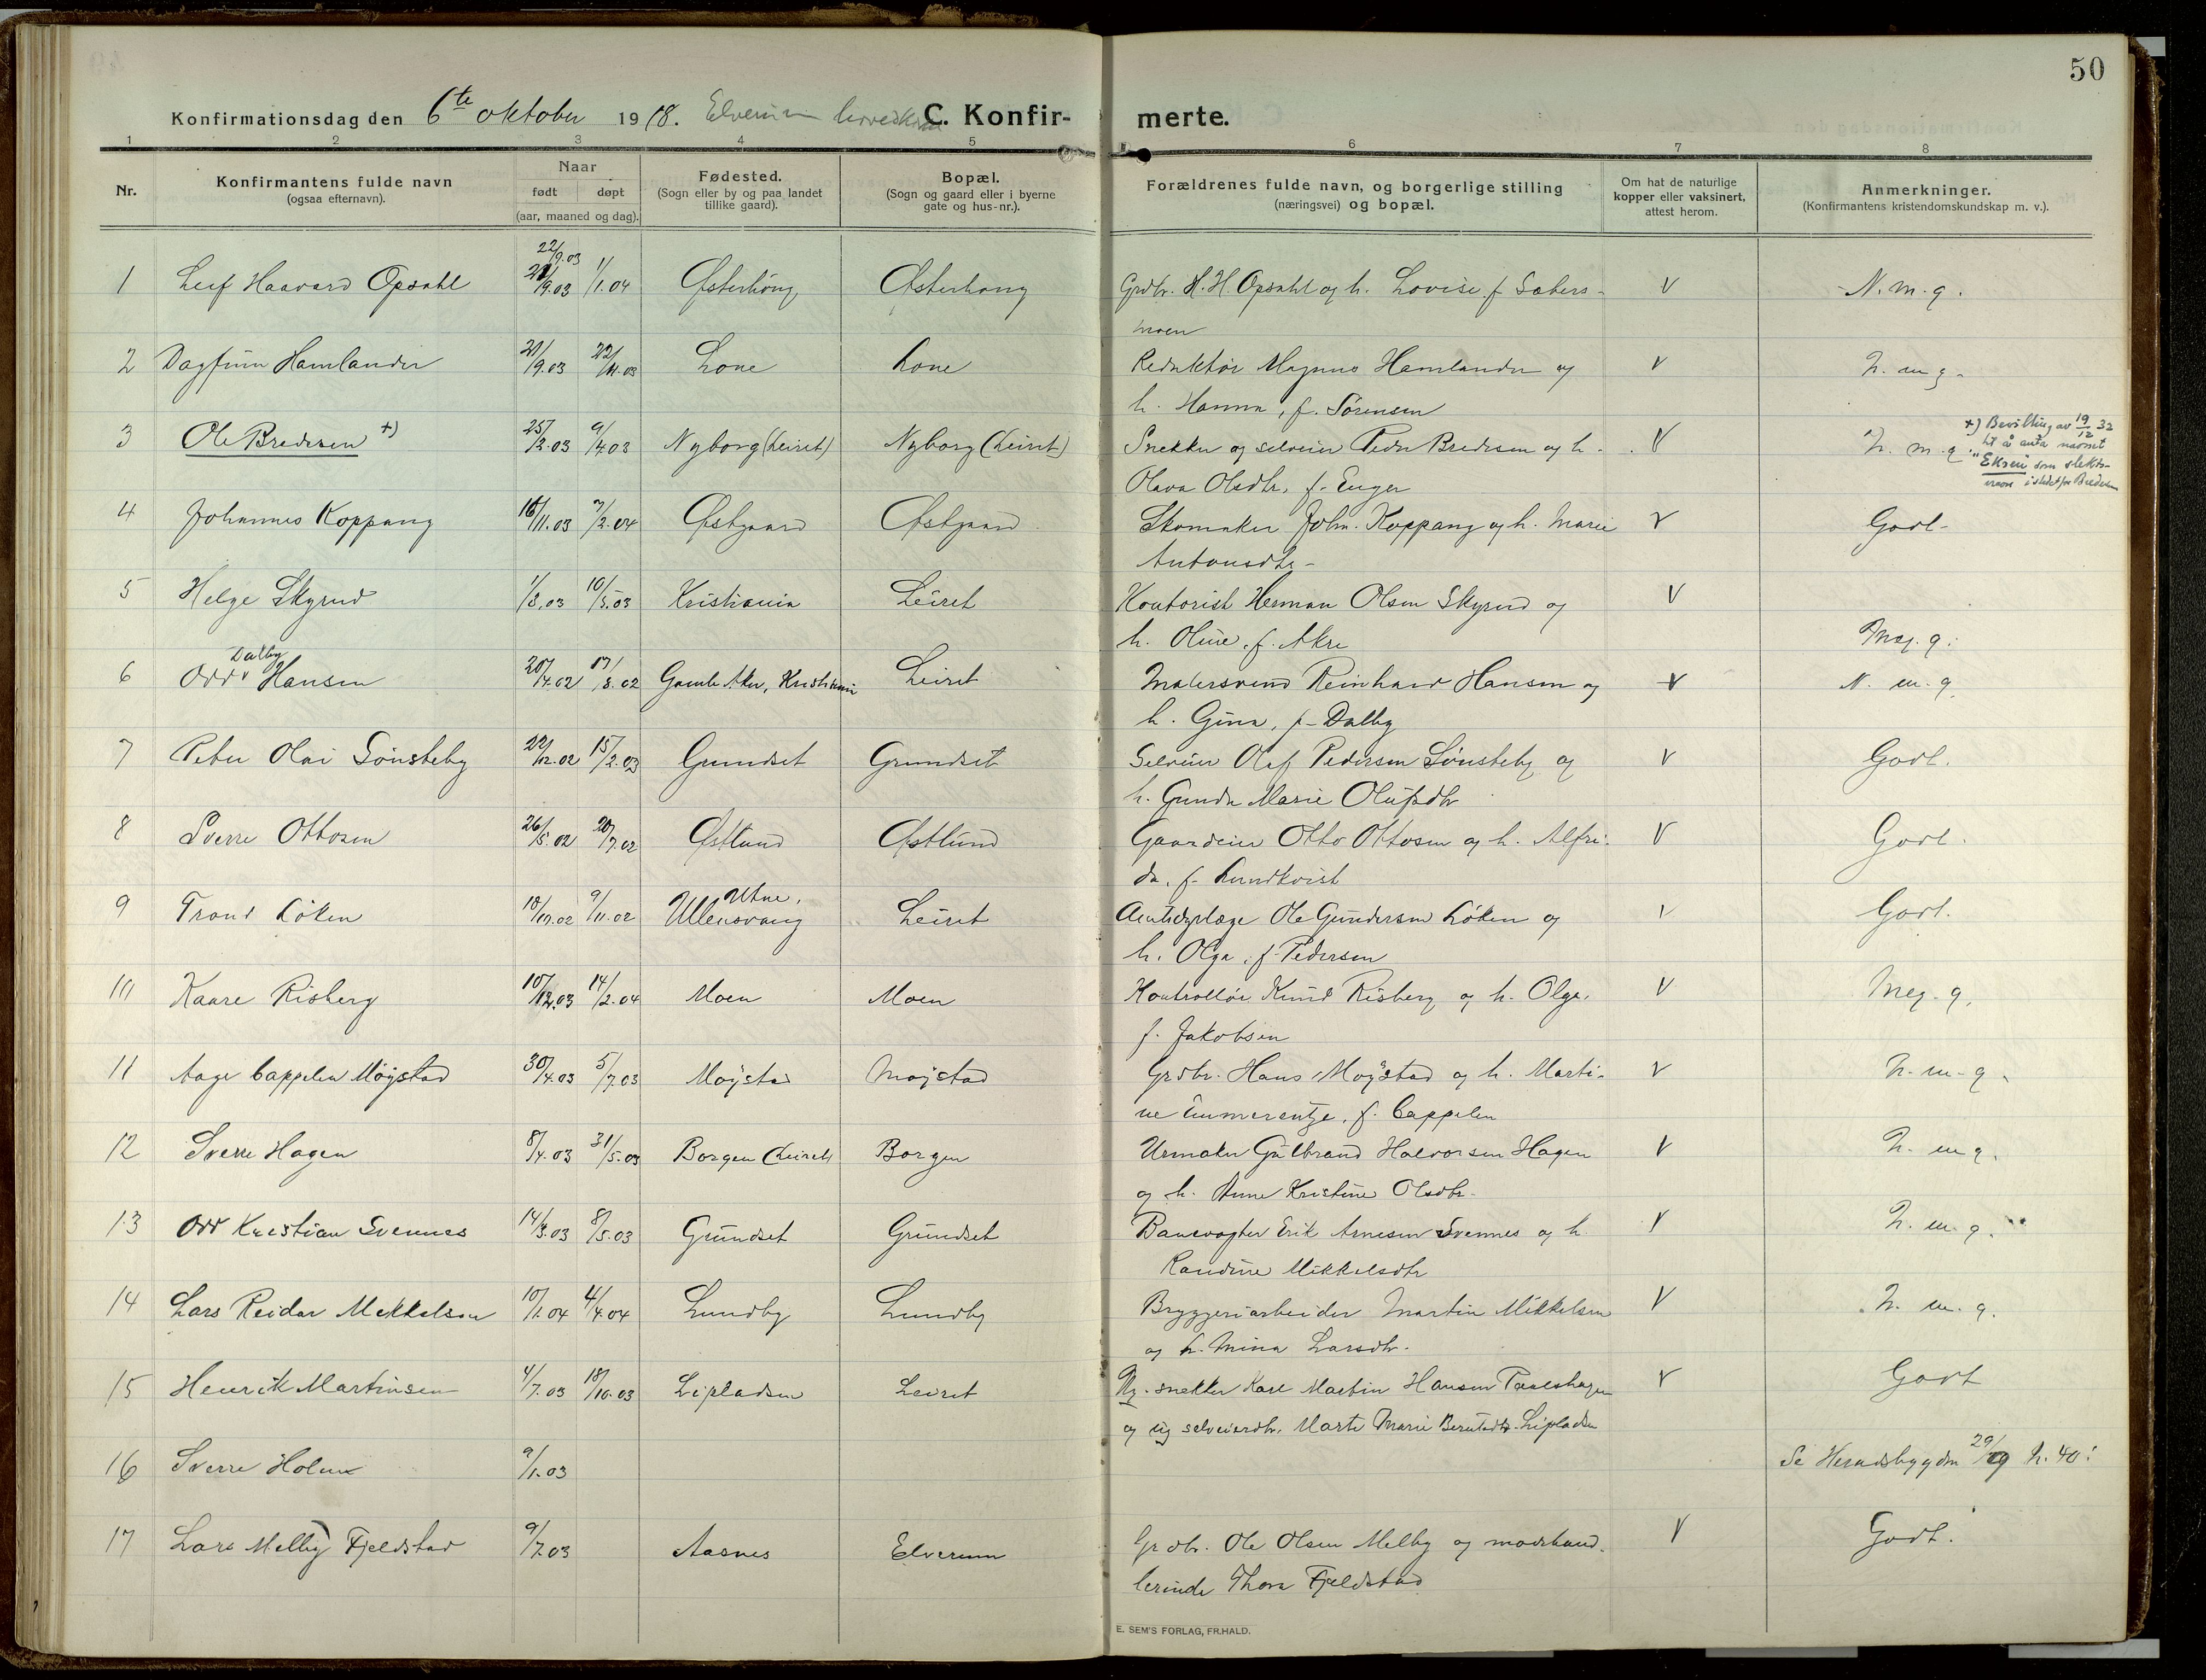 50
Konfirmationsdag den 6te oktober 1918. Elverum C. Konfirmerte.
1 2 3 4 5 6 7 8
Nr.
Konfirmantens fulde navn
(ogsaa efternavn).
Naar
født døpt
(aar, maaned og dag).
Fødested.
(Sogn eller by og paa landet
tillike gaard).
Bopæl.
(Sogn og gaard eller i byerne
gate og hus-nr.).
Forældrenes fulde navn, og borgerlige stilling
(næringsvei) og bopæl.
Om hat de naturlige
kopper eller vaksinert,
attest herom.
Anmerkninger.
(Konfirmantens kristendomskundskap m. v.).
22/9.03
1 Leif Haavard Opsahl 21/9.03 1/1.04 Østerhaug Østerhaug Grdbr. H. H. Opsahl og h. Lovise f Sæters- V N. m. g.
moen
2 Dagfinn Hamlander 21/9.03 22/11.03 Lone Lone Redaktør Magnus Hamlander og V N. m g.
h. Hanna, f. Sørensen
3 Ole Bredesen +) 25/2.03 9/4.03 Nyborg (Leiret) Nyborg (Leiret) Snekker og selveier Peder Bredesen og h. V N. m. g.
+) Bevilling av 19/12 32
til å anta navnet
"Ekren" som slekts-
navn istedetfor Bredesen
Olava Olsdtr, f. Enger
4 Johannes Koppang 16/11.03 7/2.04 Østgaard Østgaard Skomaker Johan Koppang og h. Marie V Godt.
Antonsdtr.
5 Helge Skyrud 1/3.03 10/5.03 Kristiania Leiret Kontorist Herman Olsen Skyrud og V
h. Oline, f. Akre Meg. g.
Dalby
6 Odd v Hansen 20/4.02 17/8.02 Gamle Aker, Kristiania Leiret Malersvend Reinhard Hansen og V N. m. g.
h. Gina, f. Dalby
7 Peter Olai Sønsteby 22/12.02 15/2.03 Grundset Grundset Selveier Olaf Pedersen Sønsteby og V Godt.
h. Gunda Marie Olufsdtr
8 Sverre Ottosen 26/5.02 20/7.02 Østlund Østlund Gaardeier Otto Ottosen og h. Alfri- V Godt.
da, f. Lundkvist
Utne,
9 Trond Løken 10/10.02 9/11.02 Ullensvang Leiret Amtsdyrlæge Ole Gundersen Løken og V Godt.
h. Olga, f. Pedersen
10 Kaare Risberg 10/12.03 14/2.04 Moen Moen Kontrollør Knud Risberg og h. Olga, V Meg. g.
f. Jakobsen
11 Aage Cappelen Møystad 30/4.03 5/7.03 Møystad Møystad Grdbr. Hans Møystad og h. Marti- V N. m. g.
ne Emmerentze, f. Cappelen
12 Sverre Hagen 8/4.03 31/5.03 Borgen (Leiret) Borgen Urmaker Gulbrand Halvorsen Hagen V N. m g.
og h. Anne Kristine Olsdtr.
13 Odd Kristian Svennes 14/3.03 8/5.03 Grundset Grundset Banevogter Erik Arnesen Svennes og h V N. m. g.
Randine Mikkelsdtr
14 Lars Reidar Mikkelsen 10/1.04 4/4.04 Lundby Lundby Bryggeriarbeider Martin Mikkelsen V N. m. g.
og h. Mina Larsdtr.
15 Henrik Martinsen 4/7.03 18/10.03 Lipladsen Leiret Ug. snekker Karl Martin Hansen V Godt
og ug selveierdtr. Marte Marie Berntsdtr. Lipladsen
16 Sverre Holen 9/1.03 Se Heradsbygden 29/9 N. 40!
17 Lars Melby Fjeldstad 9/7.03 Aasnes Elverum Grdbr. Ole Olsen Melby og modehand- V Godt.
lerinde Thora Fjeldstad
E. SEM'S FORLAG, FR.HALD.